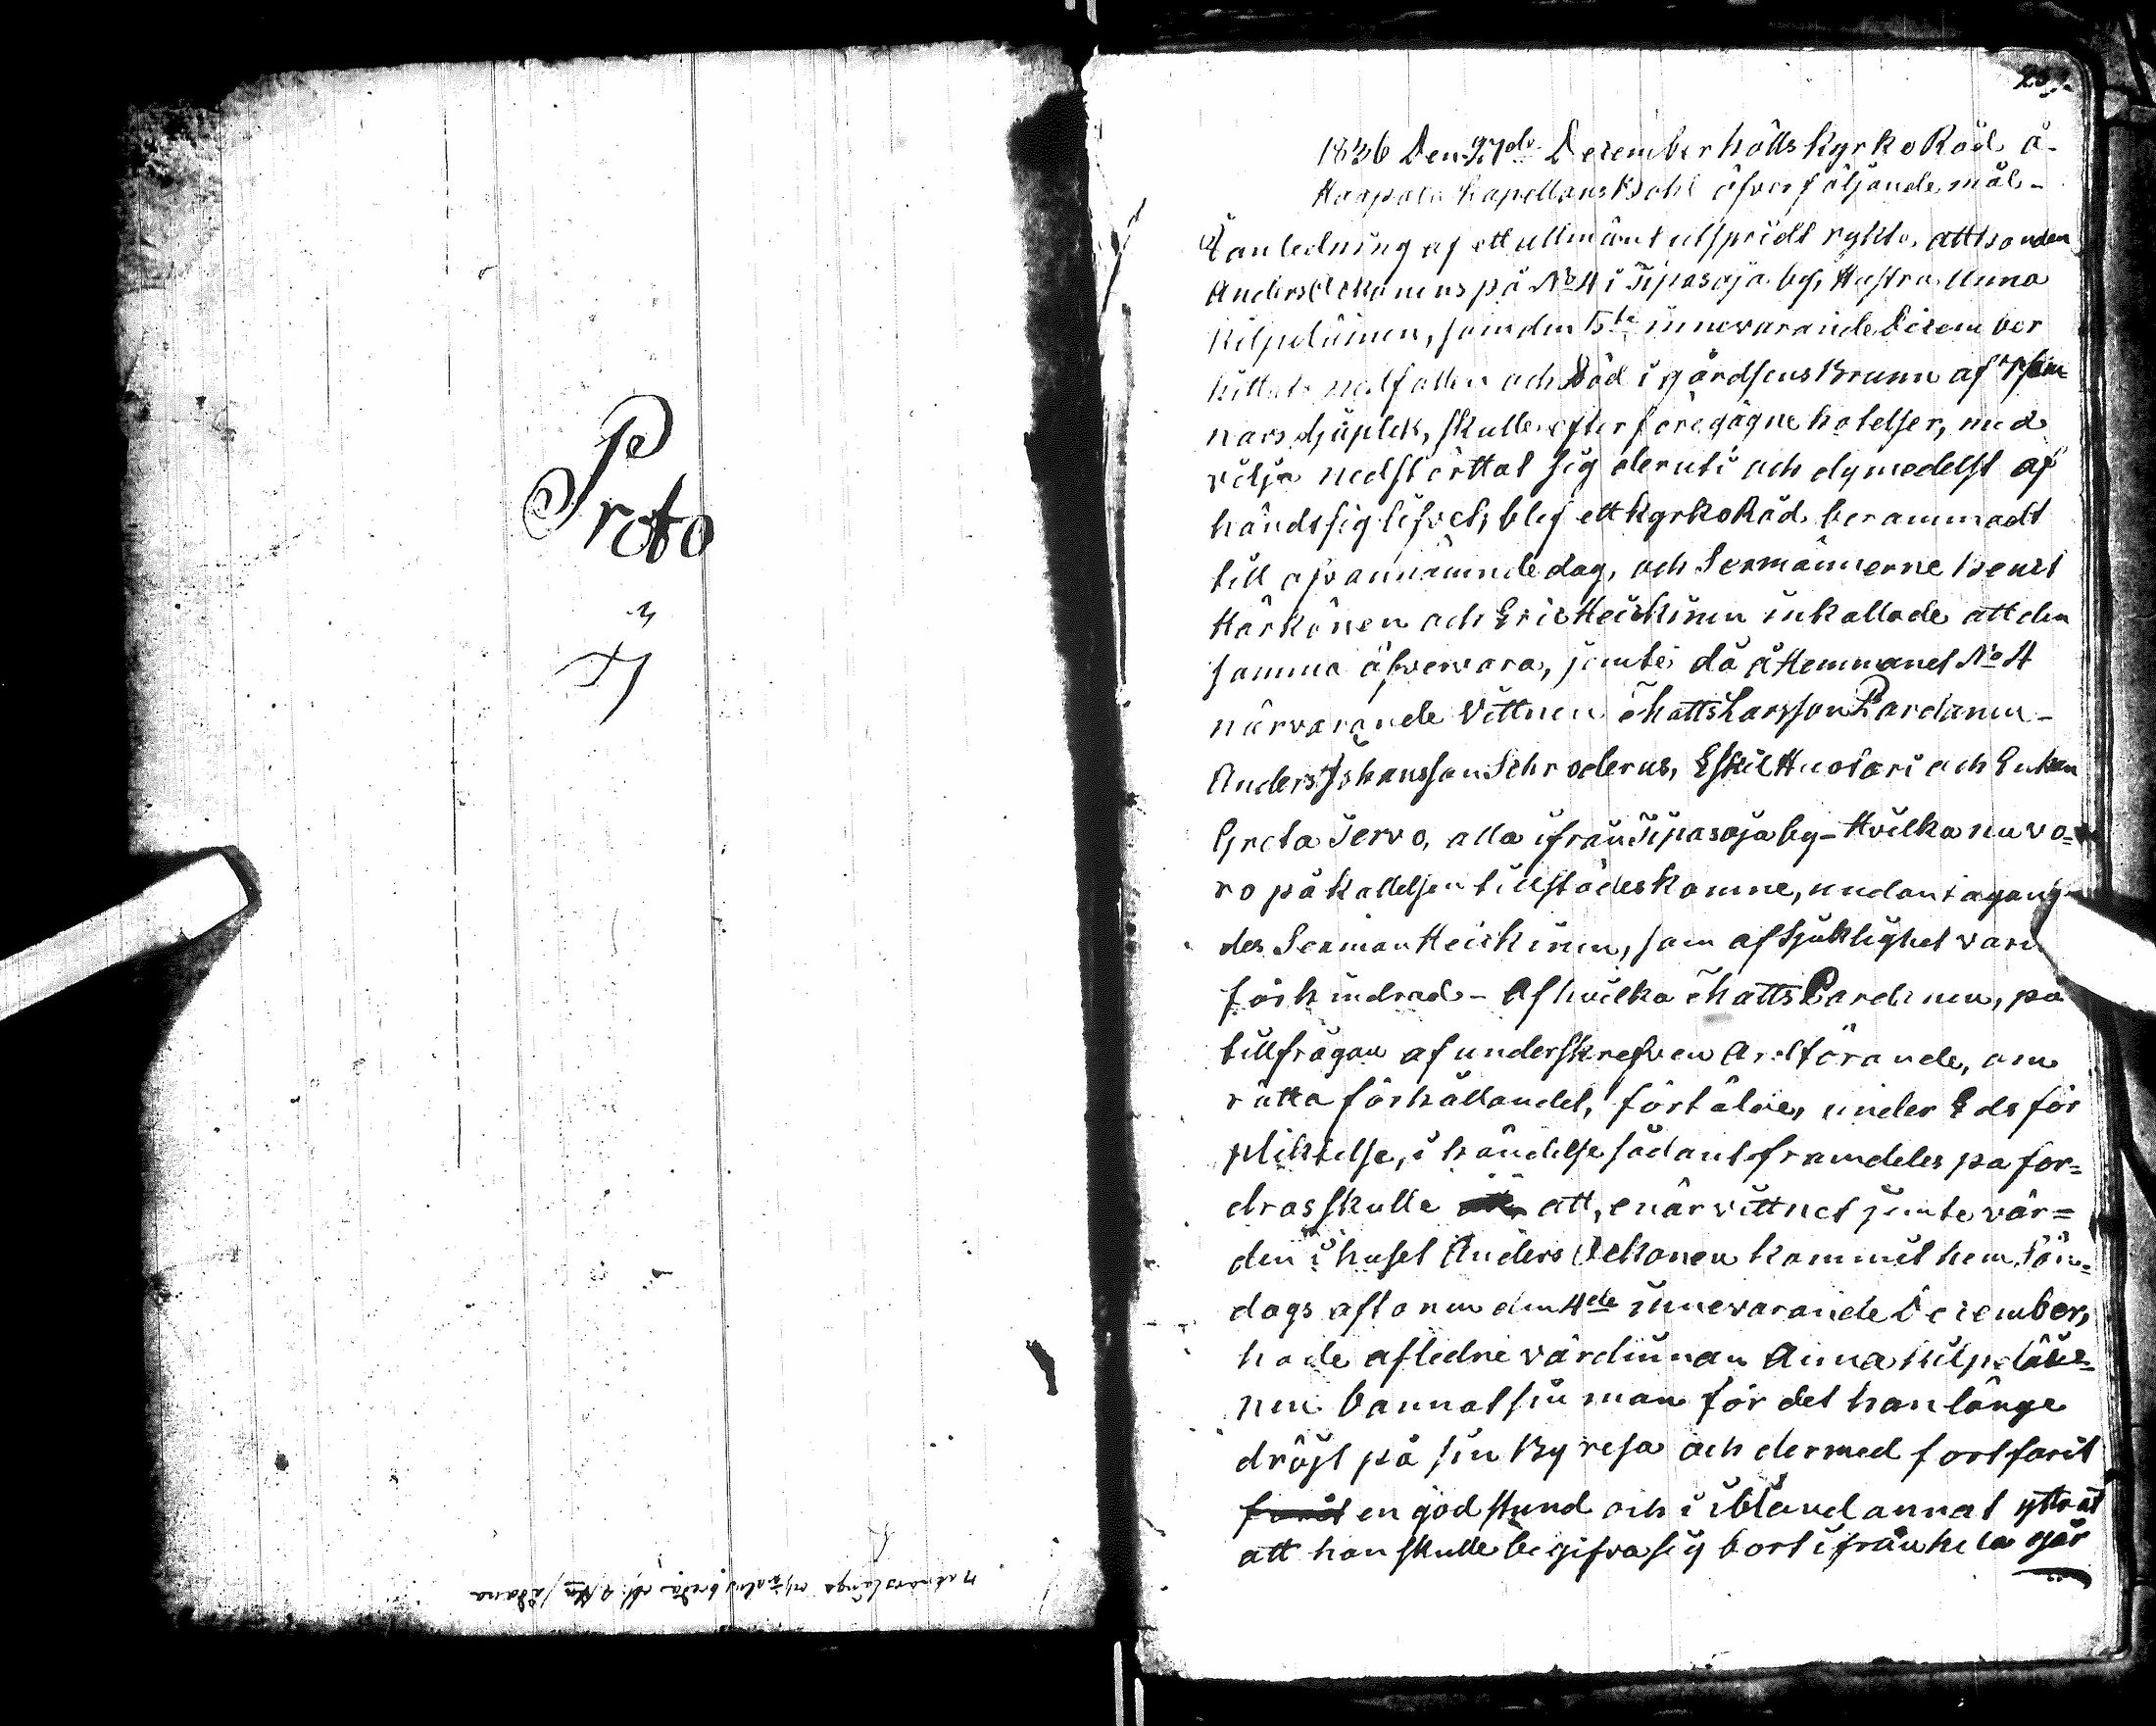 Proto
207.
1836 Den 27de December hölls Kyrko Råd å
Haapala Kapellans Bohl öfver följande mål-
I anledning af ett allmänt utspridt rykte, att bonden
Anders Ockonens på No 4 i Tipasoja by, Hustru Anna
Kilpeläinen, som den 5te innevarande December
hittats nedfallen och död i gårdsens Brunn af 7 fam-
nars djuplek, skulle efter föregågne hotelser, med
vilja nedstörttat sig deruti och dymedelst af
händt sig lifvet, blef ett Kyrko Råd berammadt
till ofvannämnde dag, och Sexmännerne Bengt
Härkönen och Eric Heickinen inkallade att den
samma öfvervara, jemte då å Hemmanet No 4
närvarande Vittnen Matts Larsson Pardanen-
Anders Johansson Schroderus, Eskil Huotari och Enkan
Greta Servo, alla ifrån Tipasoja by- Hvilka nu vo=
ro på kallelsen tillstädeskomne, undantagan=
des Sexman Heickinen, som af sjuklighet vari
förhindrad- Af hvilka Matts Pardanen, på
tillfrågan af underskrefven Ordförande, om
rätta förhållandet, förtälde, under Eds för
pliktelse, i händelse sådant framdeles på for=
dras skulle att, enär vittnet jemte vär=
den i huset Anders Ockonen kommit hem Sön=
dags aftonen den 4de innevarande December,
hade afledne värdinnan Anna Kilpeläi=
nen bannat sin man för det han länge
dröjt på sin By resa och dermed fortfarit
farit en god stund och i ibland annat yttrat
att han skulle begifva sig bort ifrån hela går